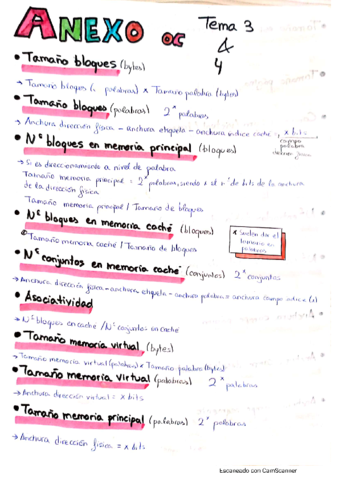 ANEXO OC Tema 3 & 4
• Tamaño bloques (bytes)
→ Tamaño bloques (palabras) x Tamaño palabra (bytes)
• Tamaño bloques (palabras) 2^x palabras
→ Anchura dirección física - anchura etiqueta - anchura índice caché = x bits
campo
palabra
• Nº bloques en memoria principal (bloques)
→ Si es direccionamiento a nivel de palabra
Tamaño memoria principal = 2^x palabras, siendo x el nº de bits de la anchura
de la dirección física
Tamaño memoria principal / Tamaño de bloques
• Nº bloques en memoria caché (bloques)
Tamaño memoria caché / Tamaño de bloques
* Suelen dar el
tamaño en
palabras
• Nº conjuntos en memoria caché (conjuntos) 2^x conjuntos
→ Anchura dirección física - anchura etiqueta - anchura palabra = anchura campo índice (x)
• Asociatividad
→ Nº bloques en caché / Nº conjuntos en caché
• Tamaño memoria virtual (bytes)
→ Tamaño memoria virtual (palabras) x Tamaño palabra (bytes)
• Tamaño memoria virtual (palabras) 2^x palabras
→ Anchura dirección virtual = x bits
• Tamaño memoria principal (palabras) 2^x palabras
→ Anchura dirección física = x bits
Escaneado con CamScanner